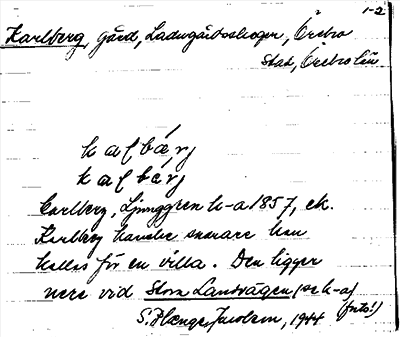 1-2
Karlberg, gård, Ladugårdsskogen, Örebro
stad, Örebro län.
kaɭbǽrj
kaɭbærj
Carlberg, Ljunggren k-a 1857, ek.
Karlberg kanske snarare kan
kallas för en villa. Den ligger
nere vid Stora Landvägen (se k-a)
(foto!)
S. Jacobson, 1944